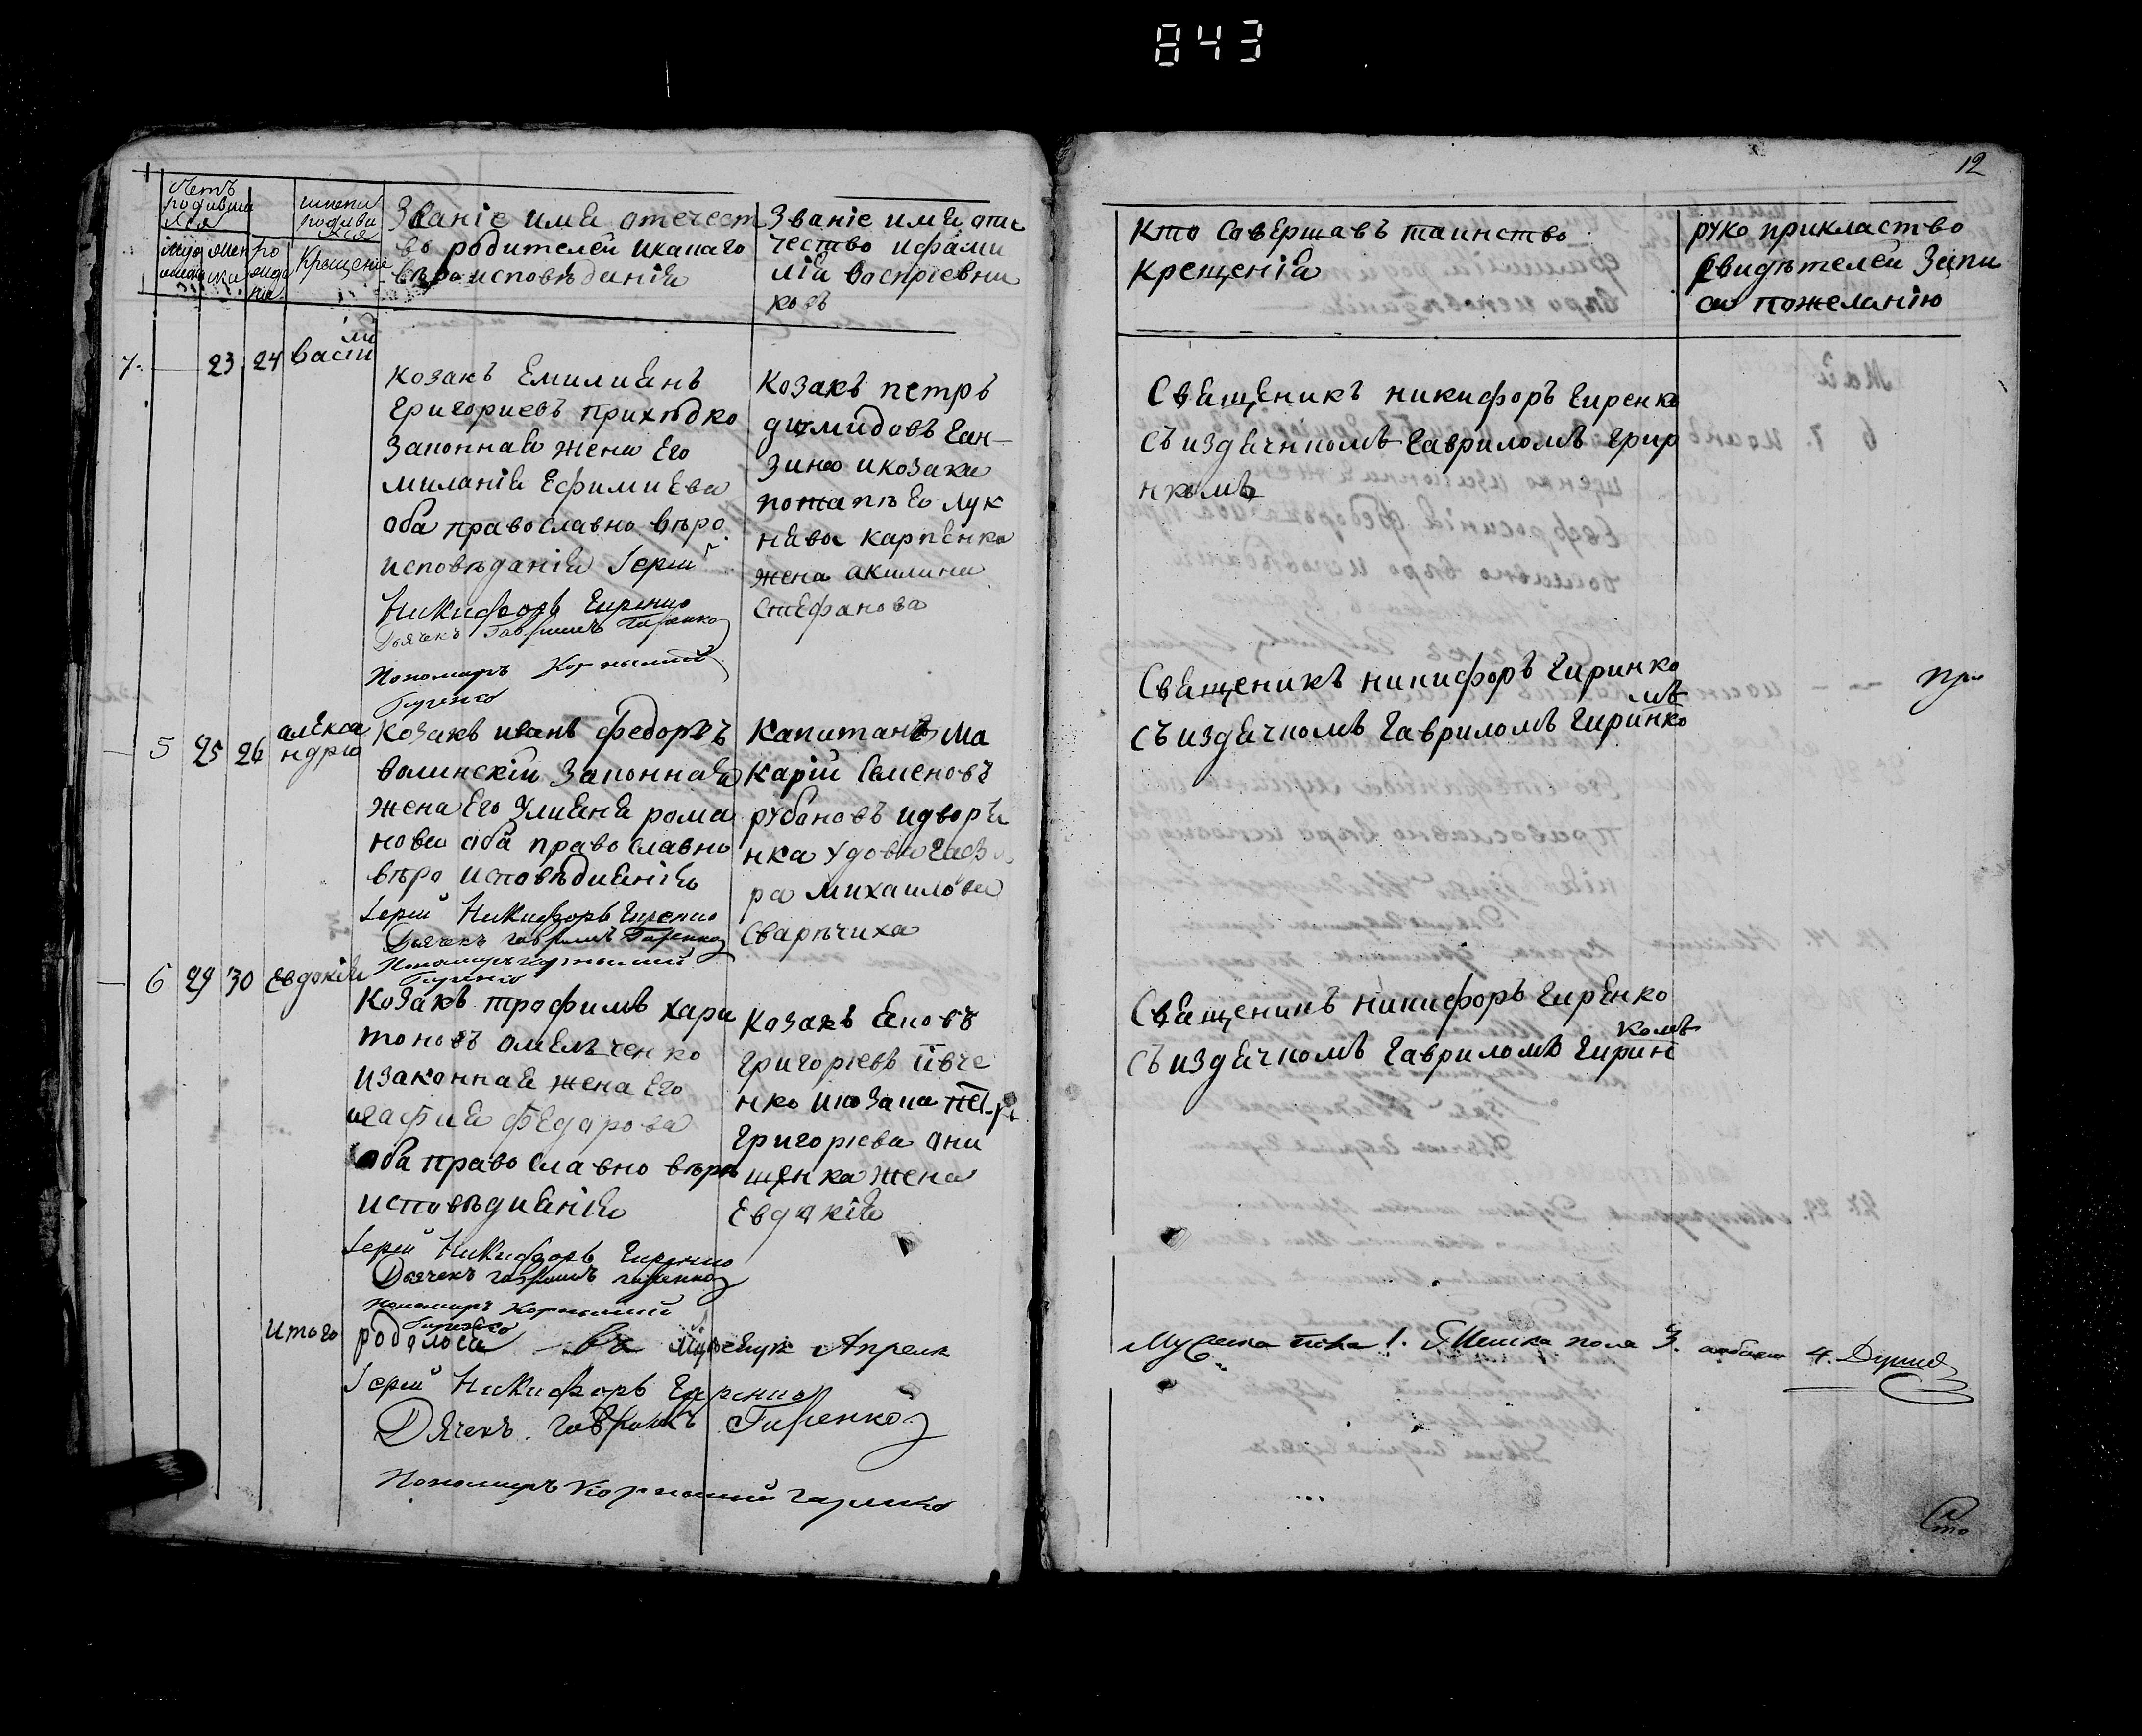 843
12
родивша
Званіе имя отечест
во родителей икакаго
вѣроисповѣданія
Званіе имя оте
чество ифами
лія воспріевни
ковъ
Кто Совершавъ таинство
Крещенія
руко прикластво
Свидѣтелей Запи
си пожеланію
7. 23 24 васи
лій
козакъ Емилиянъ
Григориевъ прихѣдко
Законная жена Его
миланія Ефимиева
оба православно вѣро
исповѣданія Іерей
Никифоръ Гиренко
Дьячекъ Гавриилъ Гиренко
Пономаръ Корнылий
Гиренко
Козакъ петръ
димидовъ Ган-
зина икозака
Лук
нява карпенка
жена акилина
Стефанова
Свящяникъ никифоръ Гиренко
Съ издячкомъ Гавриломъ Гир
нкомъ
5 25 26 алекса
ндра
Козакъ иванъ федоровъ
волинскій Законная
жена Его Улияня рома
нова оба православно
вѣро исповѣдианія
Іерей Никифоръ Гиренко
Дьячекъ гавриилъ Гиренко
Пономаръ корнылий
Гиренко
Капитанъ ма
карій Семеновъ
рубановъ идворя
нка удова
ра михаилова
Сварѣчиха
Свящяникъ никифоръ Гиринко
мъ
Съ издячкомъ Гавриломъ Гиринко
6 29 30 Евдокія
Козакъ трофимъ хари
тоновъ омелѣченко
изаконная жена Его
агафия федорова
оба православно вѣро
исповѣдианія
Іерей Никифоръ Гиренко
Дьячекъ гавриилъ гиренко
пономаръ корнылий
Гиренко
Козакъ яковъ
Григориевъ івче
нко икозака петра
Григориева они
щенка жена
Евдокія
Свящяникъ никифоръ Гирѣнко
комъ
Съ издячкомъ Гавриломъ Гирин
Итого родилося въ Апреля
Мужеска пола 1. Женска пола 3. обоего 4. Душъ
Іерей Никифоръ Гиренко
Дячекъ гавриилъ Гиренко
Пономаръ Корнылий гиренко